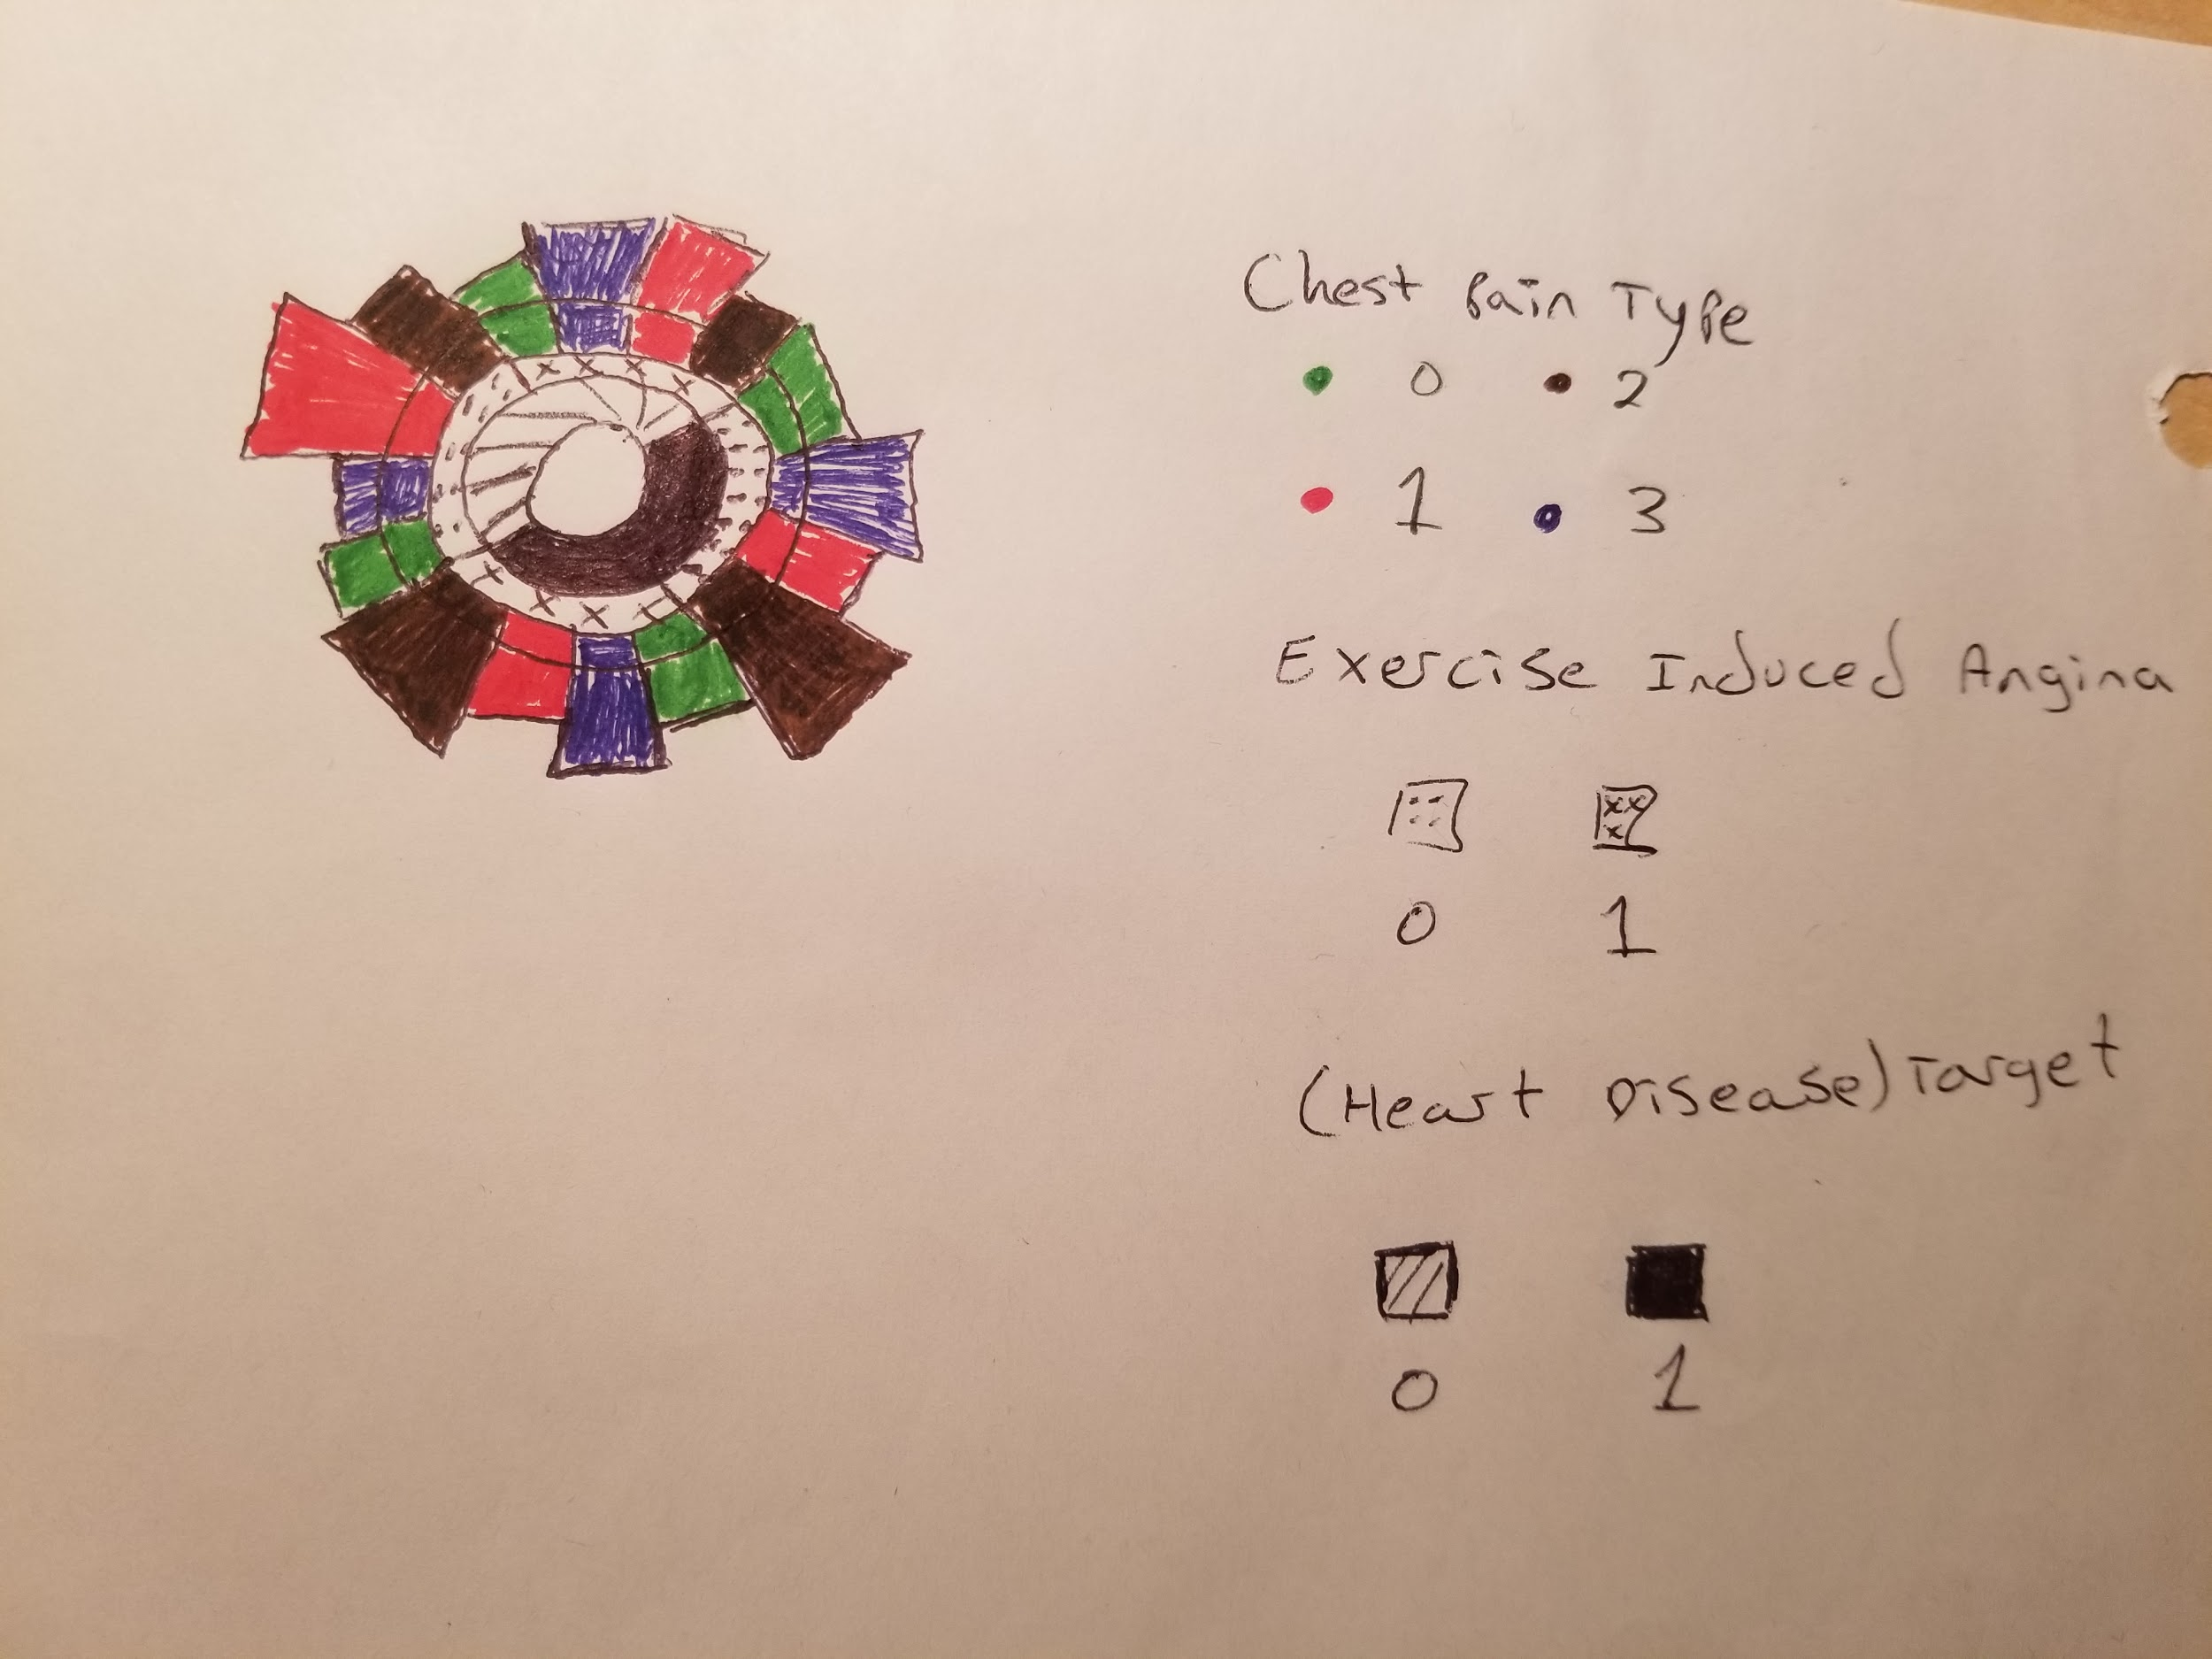 Chest Pain Type
0 2
1 3
Exercise Induced Angina
0 1
(Heart Disease) Target
0 1